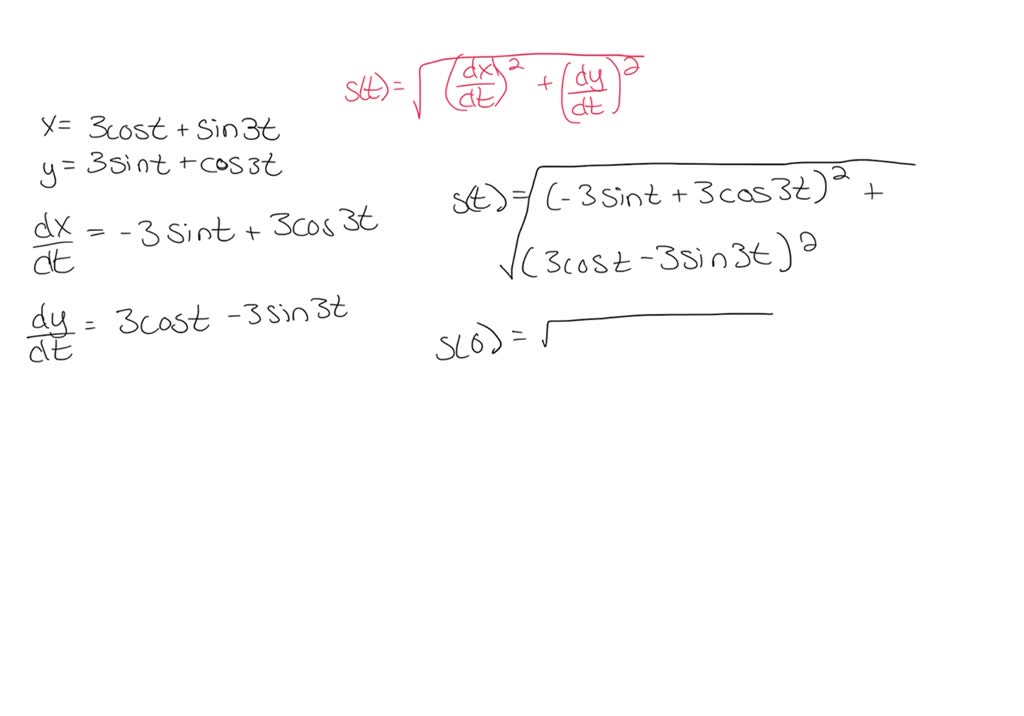 s(t) = √((dx/dt)² + (dy/dt)²)
x = 3cost + sin3t
y = 3sint + cos3t
dx/dt = -3sint + 3cos3t
dy/dt = 3cost - 3sin3t
s(t) = √(-3sint + 3cos3t)² +
√(3cost - 3sin3t)²
s(0) = √